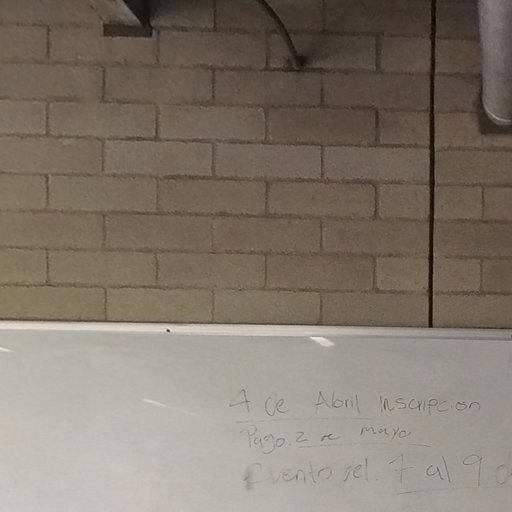 4 de Abril Inscripcion
Pago. 2 de mayo
Evento del. 7 al 9